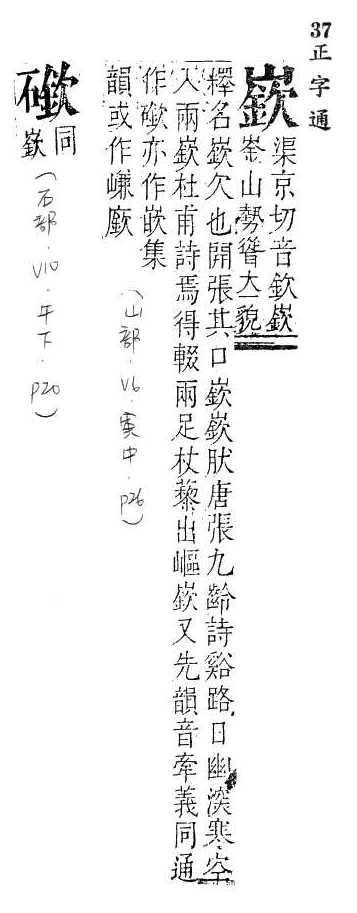 37 正字通
嶔 渠京切音欽嶔
崟山勢聳大貌
釋名嶔欠也開張其口嶔嶔肰唐張九齡詩谿路日幽深寒空
入兩嶔杜甫詩焉得輟兩足杖藜出嶇嶔又先韻音牽義同通
作亦作嵌集
韻或作嵰廞
(山部.V6.寅中.P26)
同
嶔
(石部.V10.午下.P20)